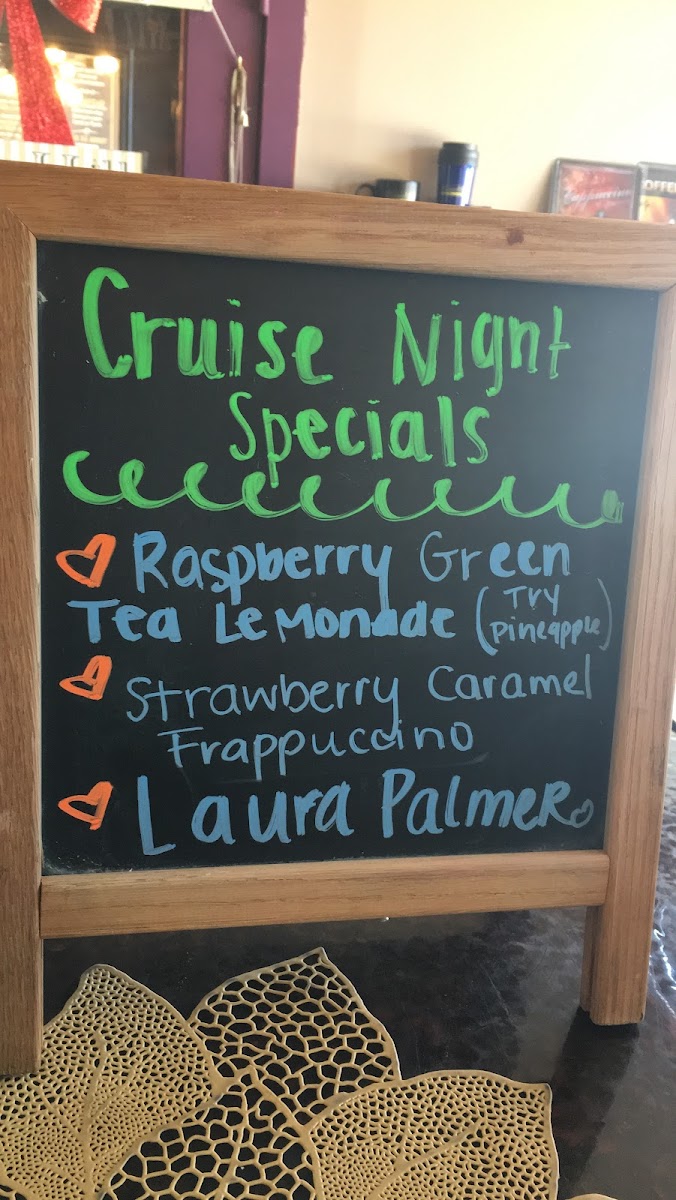 Cruise Night
Specials
Raspberry Green
Tea Lemonade (Try
pineapple)
Strawberry Caramel
Frappuccino
Laura Palmer